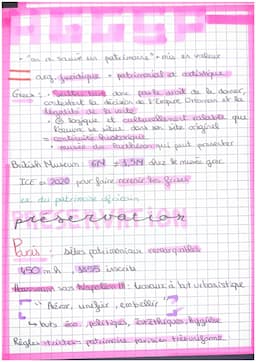 HGGSP
"on a sauvé un patrimoine" + mis en valeur
arg. juridique + patrimonial et artistique
Grecs :
contestent la décision de l'Empire Ottoman et la
légalité de la vente
logique et culturellement valable que
l'œuvre se situe dans son site original
= continuité historique
musée du Parthénon qui peut présenter
British Museum : 6M ≠ 1,5M chez le musée grec
ICE en 2020 pour faire revenir les frises
ex du patrimoine africain
préservation
Paris : sites patrimoniaux remarquables
inscrits
Haussmann sous Napoléon III : travaux à but urbanistique
"Aérer, unifier, embellir"
↳ buts éco, politiques, esthétiques, hygiène
Règles strictes : patrimoine parisien